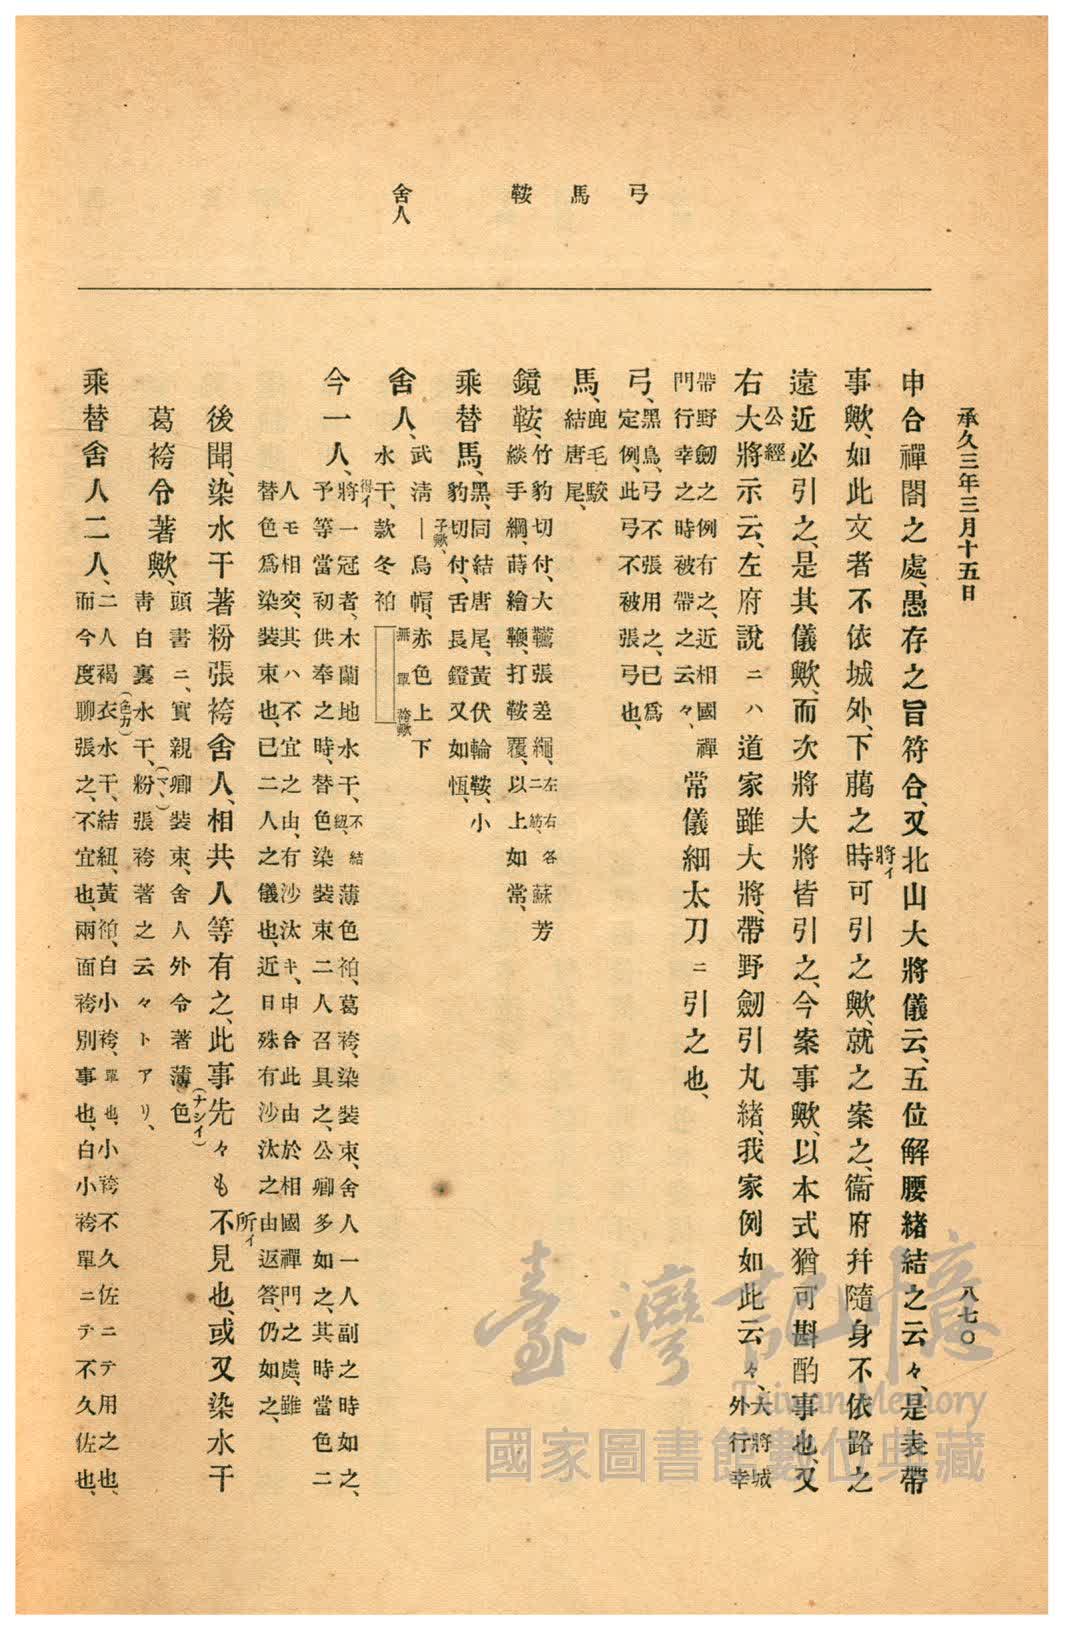 承久三年三月十五日
八七〇
弓
馬
鞍
舍人
申合禪閤之處、愚存之旨符合、又北山大將儀云、五位解腰緒結之云々、是表帶
事歟、如此文者不依城外、下﨟之時將イ可引之歟、就之案之、衞府幷隨身不依路之
遠近必引之、是其儀歟、而次將大將皆引之、今案事歟、以本式猶可斟酌事也、又
右大將公經示云、左府說ニハ道家雖大將、帶野劒引丸緒、我家例如此云々、大將城
外行幸
帶野劒之例有之、近相國禪
門行幸之時被帶之云々、常儀細太刀ニ引之也、
弓、黑鳥、弓不張用之、已爲
定例、此弓不被張弓也、
馬、鹿毛駮
結唐尾、
鏡鞍、竹豹切付、大䪌張差繩、左右各蘇芳
二筋、
緂手綱、蒔繪鞭、打鞍覆、以上如常、
乘替馬、黑、同結唐尾、黃伏輪鞍、小
豹切付、舌長鐙又如恆、
子歟、
舍人、武淸―烏帽、赤色上下
水干、款冬袙
無單袴歟
今一人、得イ將一冠者、木蘭地水干、不結
紐、薄色袙、葛袴、染裝束、舍人一人副之時如之、
予等當初供奉之時、替色染裝束二人召具之、公卿多如之、其時當色二
人モ相交、其ハ不宜之由、有沙汰キ、申合此由於相國禪門之處、雖
替色爲染裝束也、已二人之儀也、近日殊有沙汰之由返答、仍如之、
後聞、染水干著粉張袴舍人、相共人等有之、此事先々(ナシイ)も不見所イ也、或又染水干
葛袴令著歟、頭書ニ、實親卿裝束、舍人外令著薄色
靑白裏水干、粉張袴著之云々トアリ、
(マヽ)
乘替舍人二人、二人褐衣(色カ)水干、結紐、黃袙、白小袴、單也、小袴不久佐ニテ用之也、
而今度聊張之、不宜也、兩面袴別事也、白小袴單ニテ不久佐也、
臺灣記憶
Taiwan Memory
國家圖書館數位典藏